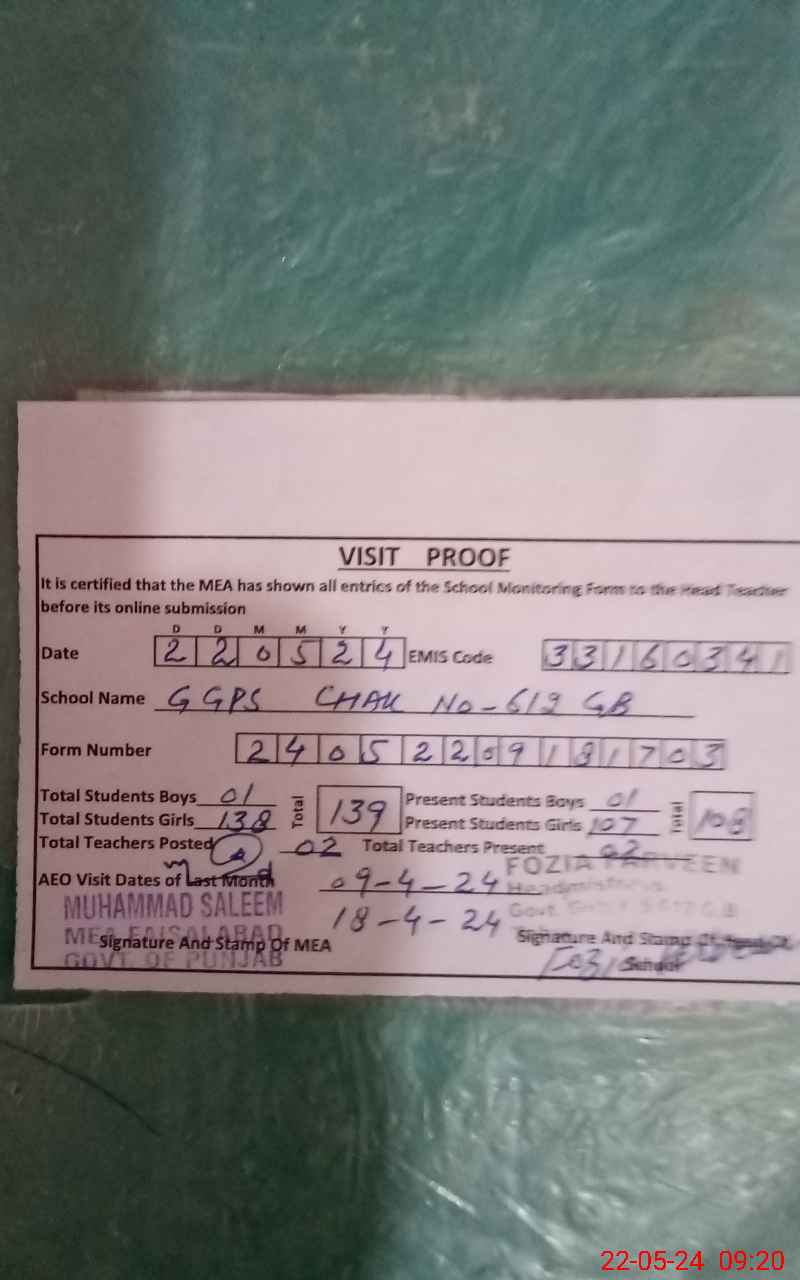 VISIT PROOF
It is certified that the MEA has shown all entries of the School Monitoring Form to the Head Teacher
before its online submission
D D M M Y Y
Date 2 2 0 5 2 4 EMIS Code 3 3 1 6 0 3 4 1
School Name G GPS CHAK No-612 GB
Form Number 2 4 0 5 2 2 0 9 1 8 1 7 0 3
Total Students Boys 01 Total 139 Present Students Boys 01 Total 108
Total Students Girls 138 Present Students Girls 107
Total Teachers Posted 02 Total Teachers Present 02
FOZIA PARVEEN
AEO Visit Dates of Last Month 09-4-24 Headmistress
MUHAMMAD SALEEM 18-4-24 Govt.
MEA FAISALABAD
Signature And Stamp Of MEA Signature And Stamp Of
GOVT. OF PUNJAB School
22-05-24 09:20